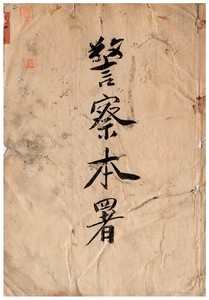 警察本署